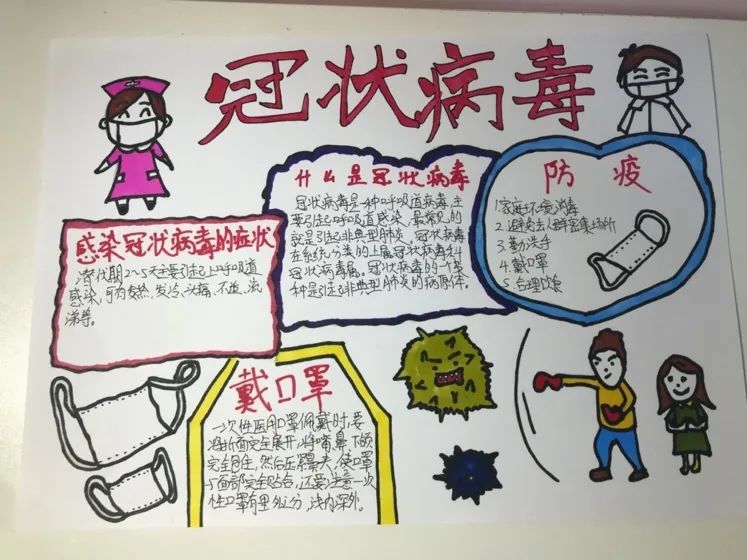 冠状病毒
什么是冠状病毒
冠状病毒是一种呼吸道病毒,主
要引起呼吸道感染,最常见的
就是引起非典型肺炎。冠状病毒
在系统分类的上属冠状病毒科
冠状病毒属。冠状病毒的一个变
种是引起非典型肺炎的病原体。
防疫
1.家庭环境消毒
2.避免出入人群密集场所
3.勤洗手
4.戴口罩
5.合理饮食
感染冠状病毒的症状
潜伏期2~5天主要引起上呼吸道
感染,可有发热、发冷、头痛、不适、流
涕等。
戴口罩
一次性医用口罩佩戴时,要
将折面完全展开,将嘴鼻下颌
完全包住,然后压紧鼻夹,使口罩
与面部完全贴合,还要注意一次
性口罩有里外之分,浅内深外。